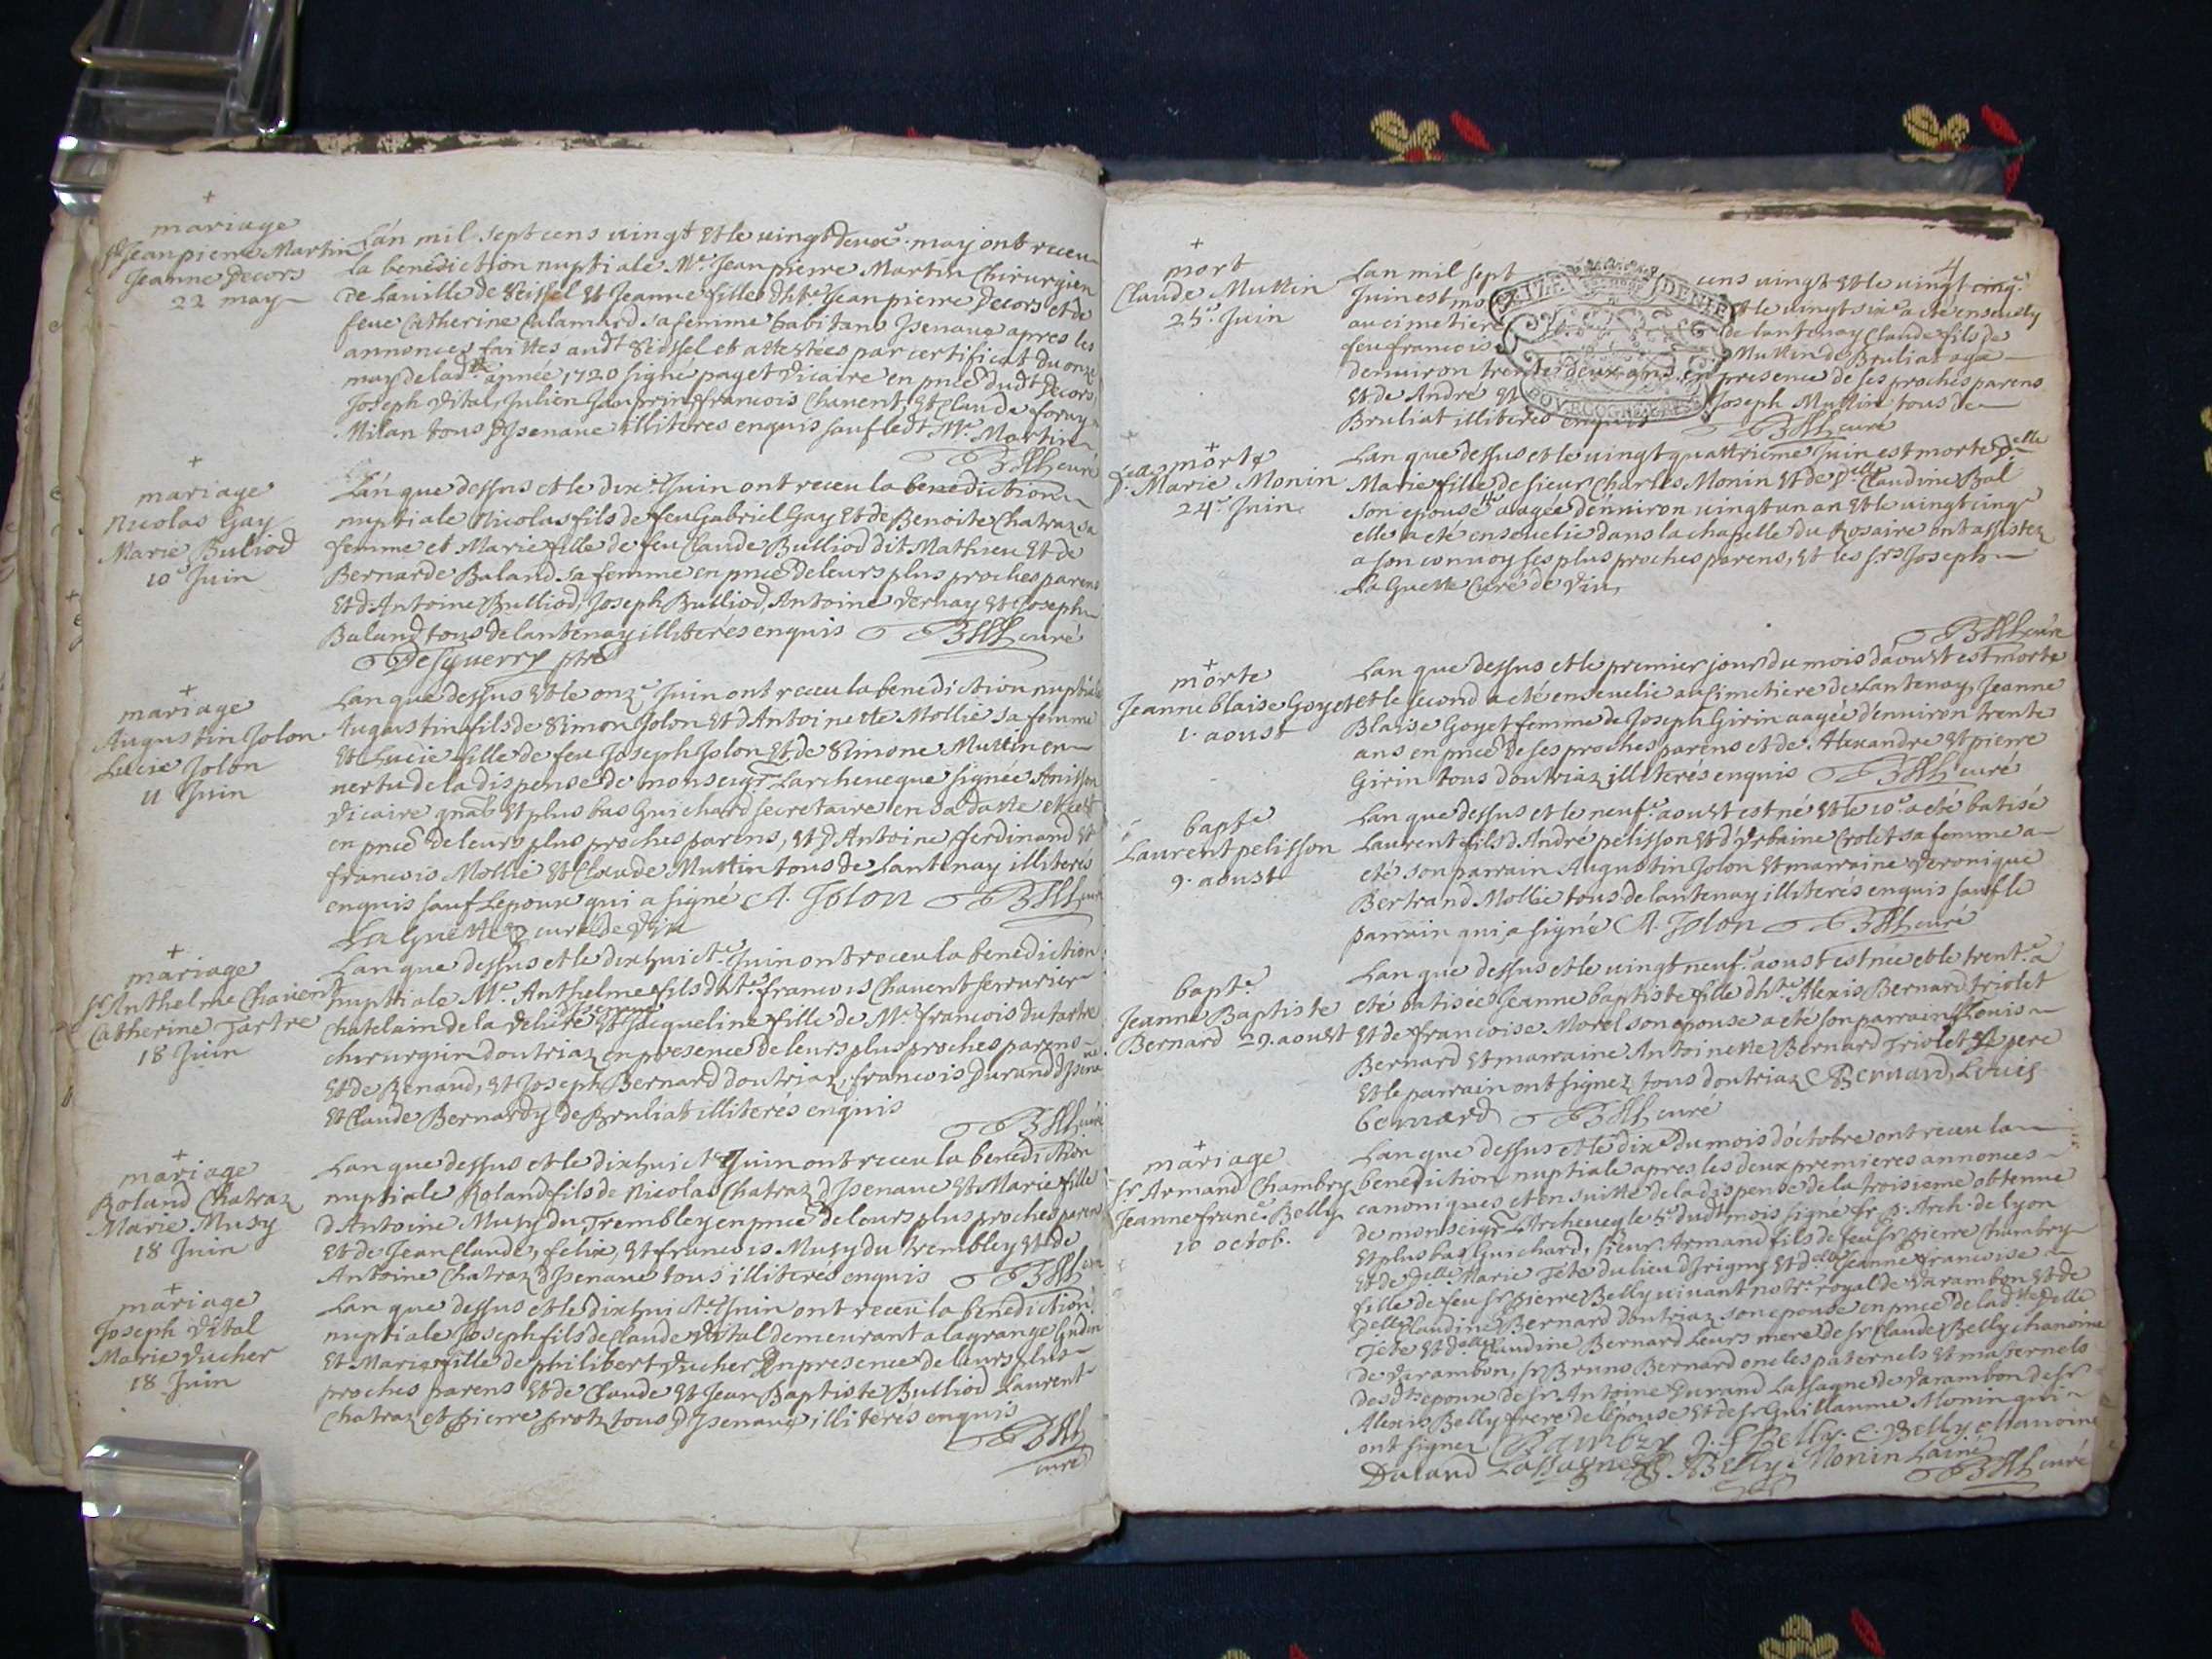 mariage
Sr Jeanpierre Martin
Jeanne Decors
22 may
Lan mil sept cens vingt et le vingt deuxe. may ont receu
la benediction nuptiale Me. Jeanpierre Martin Chirurgien
de la ville de Seissel et Jeanne fille d'hte. Jean pierre Decors et de
feue Catherine Calamard sa femme habitans Isenave apres les
annonces faittes aud't Seissel et attestées par certificat du onze
may de lad'te année 1720 signé paget vicaire en pnce dudt Decors
Joseph Vital, Julien francois Chavent, et Claude
Milan tous d'Isenave illiteres enquis sauf ledt Me. Martin
curé
mariage
Nicolas Gay
Marie Buliod
10e Juin
Lan que dessus et le dixe. Juin ont receu la benediction
nuptiale Nicolas fils de feu Gabriel Gay et de Benoite Chatraz sa
femme et Marie fille de feu Claude Bulliod dit Mathieu et de
Bernarde Baland sa femme en pnce de leurs plus proches parens
et d'Antoine Bulliod, Joseph Bulliod, Antoine Vernay et Joseph
Baland tous de lantenay illiterés enquis curé
mariage
Augustin Jolon
Lucie Jolon
11 Juin
Lan que dessus et le onze Juin ont receu la benediction nuptiale
Augustin fils de Simon Jolon et d'Antoinette Mollie sa femme
et Lucie fille de feu Joseph Jolon et de Simone Muttin en
vertu de la dispense de monseigr. Larcheveque signée Anisson
Vicaire gnal et plus bas Guichard secretaire en sa datte
en pnce de leurs plus proches parens, et d'Antoine ferdinand et
francois Mollie et Claude Muttin tous de Lantenay illiterés
enquis sauf Lepoux qui a signé A. Jolon
La Guette curé de Vin
mariage
Sr Anthelme Chavent
Catherine Tartre
18 Juin
Lan que dessus et le dixhuicte. Juin ont receu la benediction
nuptiale Me. Anthelme fils d'hte. francois Chavent serrurier
chatelain de la et Jacqueline fille de Me. francois du tartre
chirurgien doutriaz en presence de leurs plus proches parens
et de Renaud, et Joseph Bernard doutriaz, francois Durand
et Claude Bernardy de Bruliat illiterés enquis
curé
mariage
Roland Chatraz
Marie Musy
18 Juin
Lan que dessus et le dixhuicte. Juin ont receu la benediction
nuptiale Roland fils de Nicolas Chatraz d'Isenave et Marie fille
d'Antoine Musy du Trembley en pnce de leurs plus proches parens
et de Jean Claude, felix, et francois Musy du trembley et de
Antoine Chatraz d'Isenave tous illiterés enquis
mariage
Joseph Vital
Marie Vucher
18 Juin
Lan que dessus et le dixhuicte. Juin ont receu la benediction
nuptiale Joseph fils de Claude Vital demeurant a la grange
et Marie fille de philibert Vucher En presence de leurs plus
proches parens et de Claude et Jean Baptiste Bulliod Laurent
Chatraz et pierre tous d'Isenave illiterés enquis
curé
4
mort
Claude Muttin
25e. Juin
Lan mil sept cens vingt et le vingt cinqe.
Juin est mort et le vingt sixe a eté ensevely
au cimetiere de lantenay Claude fils de
feu francois Muttin de Bruliat agé
denviron trente deux ans en presence de ses proches parens
et de André et Joseph Muttin tous de
Bruliat illiterés enquis curé
morte
Marie Monin
24e. Juin
Lan que dessus et le vingt quattrieme Juin est morte delle
Marie fille de sieur Charles Monin et de delle Claudine Bal
son epouse agée denviron vingt un an et le vingt cinqe
elle a eté ensevelie dans la chapelle du Rosaire ont assistez
a son convoy ses plus proches parens, et les srs Joseph
La Guette Curé de Vin
curé
morte
Jeanne blaise Goyet
1. aoust
Lan que dessus et le premier jour du mois d'aoust est morte
et le second a eté ensevelie au cimetiere de Lantenay, Jeanne
Blaise Goyet femme de Joseph Girin aagée d'environ trente
ans en pnce de ses proches parens et de Alexandre et pierre
Girin tous doutriaz illiterés enquis curé
bapte
Laurent pelisson
9. aoust
Lan que dessus et le neufe. aoust est né et le 10e. a eté batisé
Laurent fils d'André pelisson et d'Urbaine Crolet sa femme a
eté son parrain Augustin Jolon et marraine Veronique
Bertrand Mollie tous de lantenay illiterés enquis sauf le
parrain qui a signé A. Jolon curé
bapte.
Jeanne Baptiste
Bernard 29. aoust
Lan que dessus et le vingt neufe. aoust est née et le trente. a
eté batisée Jeanne baptiste fille d'hte. Alexis Bernard triolet
et de francoise Morel son epouse a eté son parrain Louis
Bernard et marraine Antoinette Bernard Triolet le pere
et le parrain ont signez tous doutriaz Bernard, Louis
bernard curé
mariage
Sr Armand Chambry
Jeanne france. Belly
10 octob.
Lan que dessus et le dixe du mois d'octobre ont receu la
benediction nuptiale apres les deux premieres annonces
canoniques et en suitte de la dispense de la troisieme obtenue
de monseigr. L'Archeveq le 5e dudt mois signe fr. p. Arch. de lyon
et plus bas Guichard, sieur Armand fils de feu Sr pierre Chambry
et de Delle Marie Tête du lieu d'Irigny et delle Jeanne francoise
fille de feu Sr pierre Belly vivant notre royal de Varambon et de
Delle Claudine Bernard doutriaz son epouse en pnce de lad.te Delle
Tête et delle Claudine Bernard leurs mere de Sr Claude Belly chanoine
de Varambon, Sr Bruno Bernard oncles paternels et maternels
desdts epoux de Sr Antoine Durand Lassagne de Varambon de Sr
Alexis Belly frere de l'épouse et de Sr Guillaume Monin qui
ont signez J. F Belly. C. Belly chanoine
Lassagne Belly Monin Lainé
curé